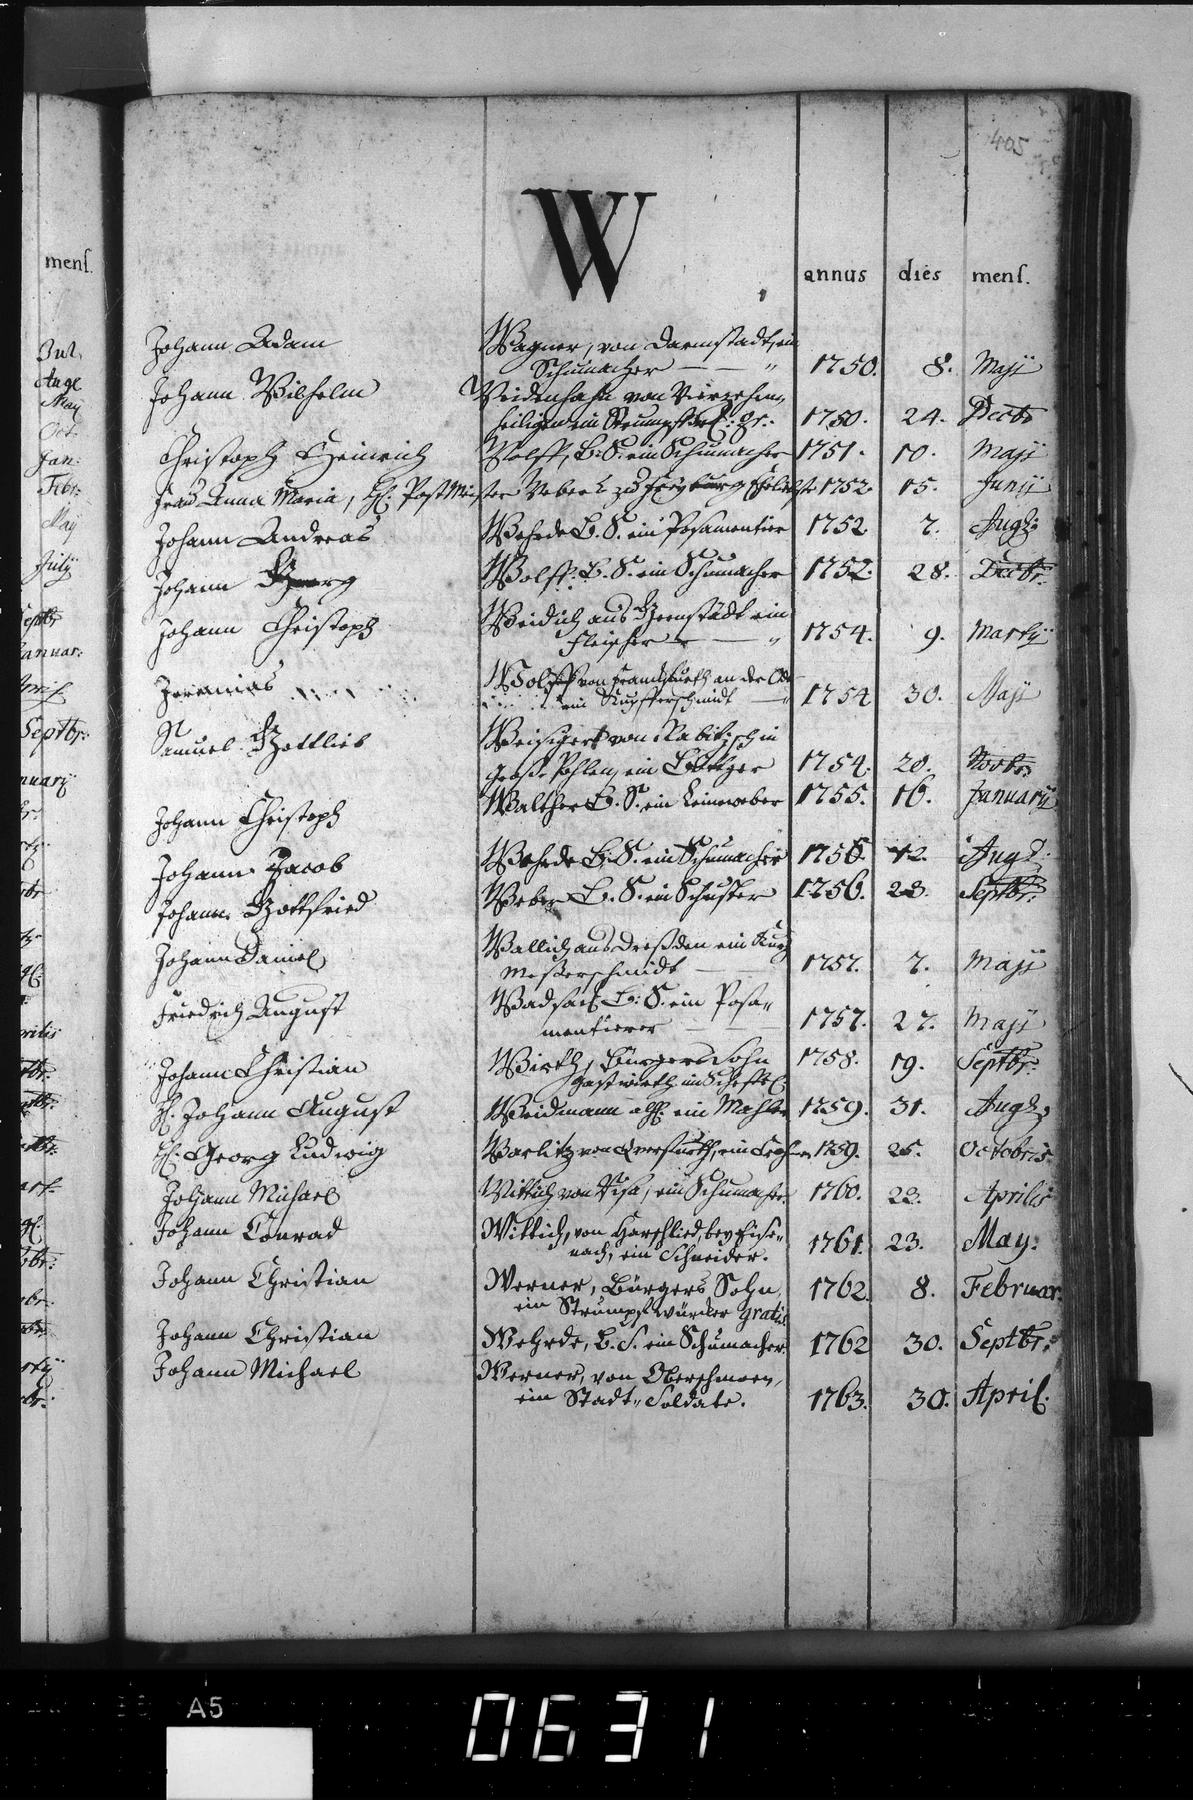 405
W
annus dies mens.
mens.
Johann Adam Wagner, von Darmstadt, ein
Schumacher — — " 1750. 8. Maji
Johann Wilhelm Weidenhahn von Vierzehen-
heiligen ein Strumpf 1750. 24. Decbr
Christoph Heinrich Wolff, B. S. ein Schumacher 1751. 10. Maji
Frau Anna Maria, H. Post Meister Weberl zu Freyburg 1752. 15. Junij
Johann Andreas Wehrde B. S. ein Posamentier 1752. 7. Aug.
Johann Georg Wolff. B. S. ein Schumacher 1752. 28. Decbr.
Johann Christoph Weidich aus Görnstädt ein
Fleischer — — " 1754. 9. Martij
Jeremias Wolff von Franckfurth an der Oder
ein Kupfferschmidt — " 1754 30. Maji
Samuel Gottlieb Weisigert von Rabitzsch in
Groß Pohlen, ein Böttger 1754. 20. Novbr
Johann Christoph Walther B. S. ein Leineweber 1755. 16. Januarij
Johann Jacob Wehrde B. S. ein Schumacher 1756. 12. Aug
Johann Gottfried Weber B. S. ein Schuster 1756. 23. Septbr.
Johann Daniel Wallich aus Dreßden ein Kurtz
Meßerschmidt — 1757. 7. Maji
Friedrich August Wadsack B. S. ein Posa-
mentierer — 1757. 27. Maji
Johann Christian Wirth, Bürgers Sohn
Gastwirth im Scheffel 1758. 19. Septbr.
H. Johann August Weidmann alh. ein Mahler 1759. 31. Aug.
H. Georg Ludwig Warlitz von Querfurth, ein 1759. 25. Octobris
Johann Michael Wittich von Pisa, ein Schumacher 1760. 23. Aprilis
Johann Conrad Wittich, von Harschlied, bey Eise-
nach, ein Schneider. 1761. 23. May.
Johann Christian Werner, Bürgers Sohn,
ein Strumpfwürcker gratis 1762. 8. Februar.
Johann Christian Wehrde, B. S. ein Schumacher. 1762 30. Septbr.
Johann Michael Werner, von Oberehmen,
ein Stadt-Soldate. 1763. 30. April.
A5
0631